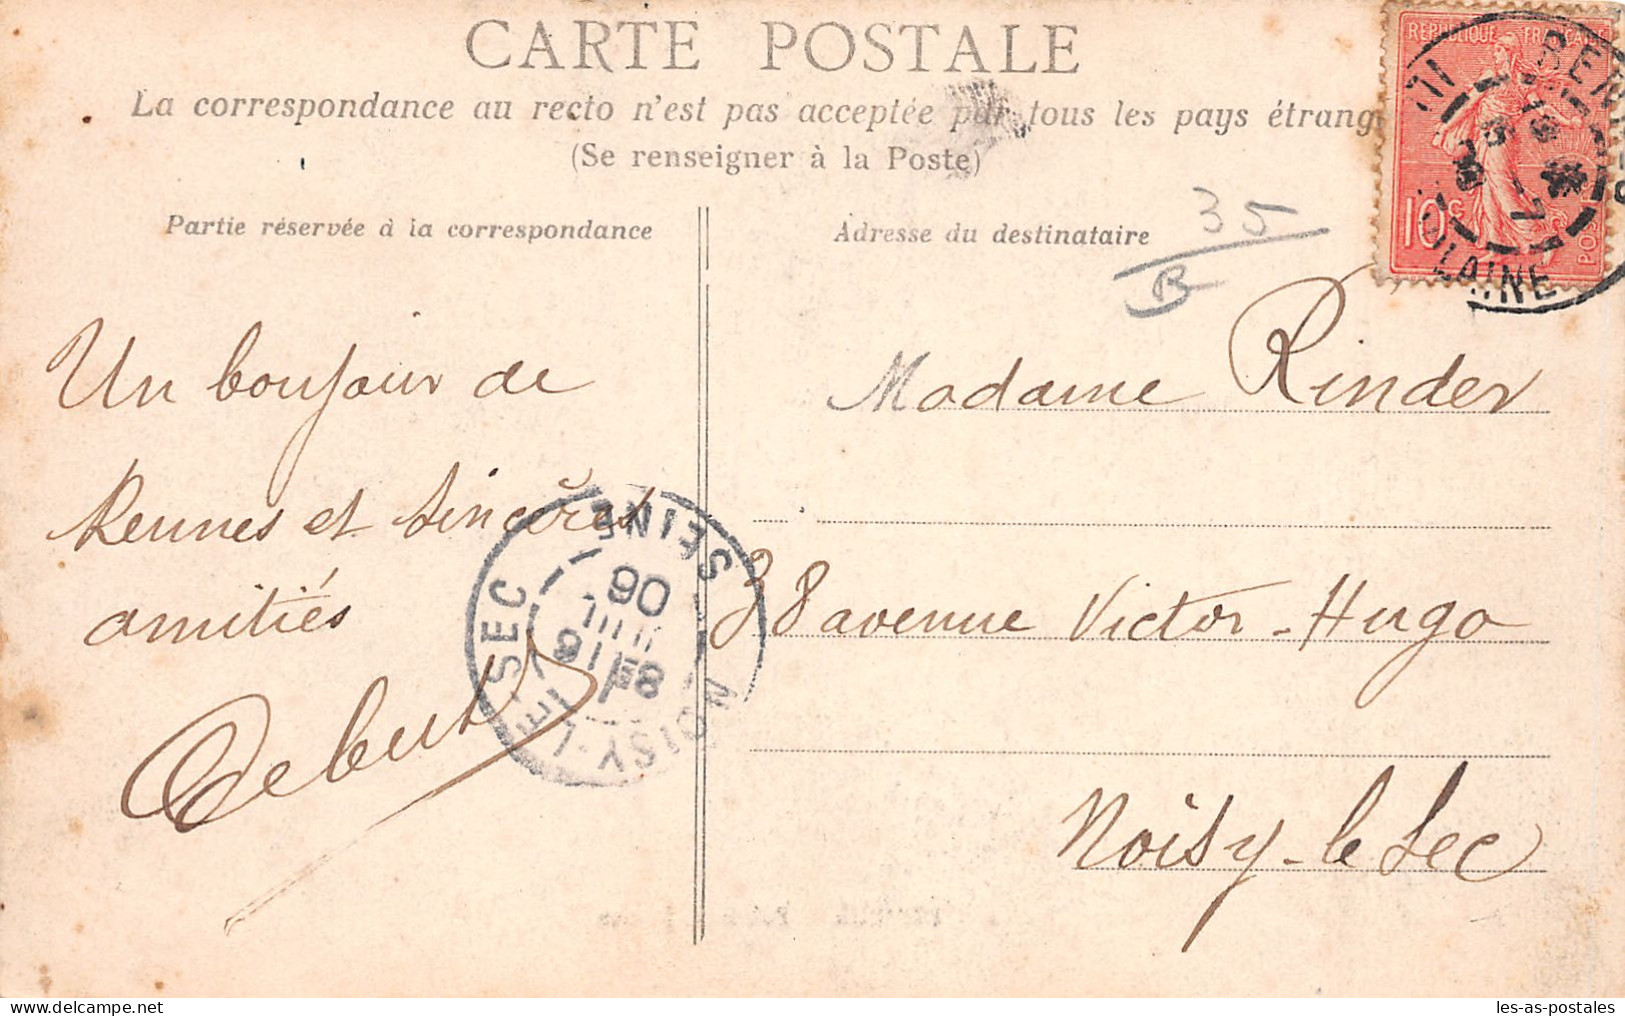 CARTE POSTALE
La correspondance au recto n'est pas acceptée par tous les pays étrang
(Se renseigner à la Poste)
Partie réservée à la correspondance
Adresse du destinataire
35
B
REPUBLIQUE FRANÇAISE
10c
POS
RENNES
VILAINE
Un bonjour de
Rennes et sincères
amitiés
Debut
NOISY-LE-SEC
SEINE
06
Madame Rinder
38 avenue Victor-Hugo
Noisy-le Sec
les-as-postales